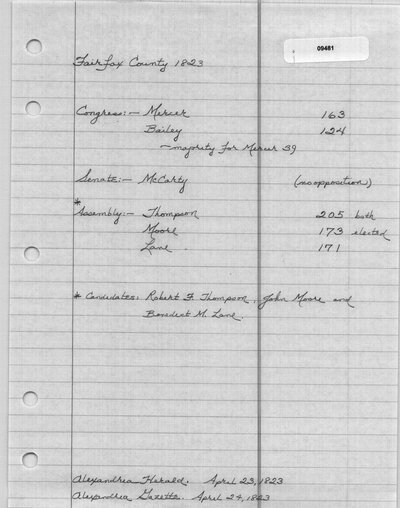 09481
Fairfax County 1823
Congress:- Mercer 163
Bailey 124
- majority for Mercer 39
Senate:- McCarty (no opposition)
*
Assembly:- Thompson 205 both
Moore 173 elected
Lane 171
* Candidates: Robert F Thompson, John Moore and
Benedict M. Lane.
Alexandria Herald. April 23, 1823
Alexandria Gazette. April 24, 1823